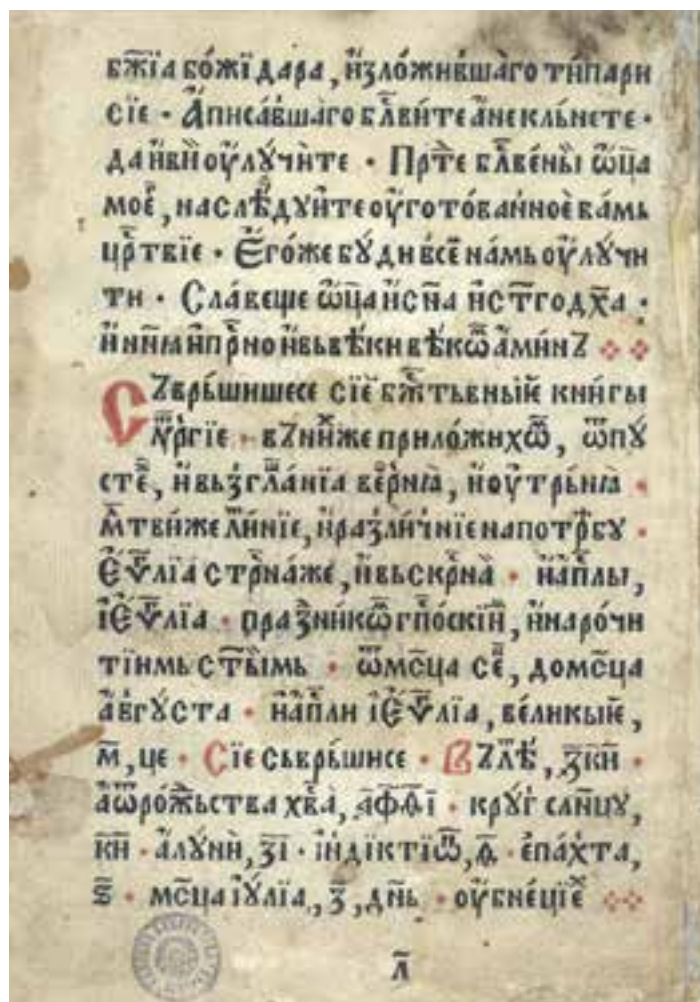 бж҃їа бо́жїдара , и҆зло́жившагѡ ти́пари
сїе · А҆писа́вшаго бл҃ви́те а҆не кль́нете ·
да и҆вы̀ оу҆лꙋчѝте · Прⷣте бл҃ве́ны ѿц҃а
моѐ , наслѣ́дꙋите оу҆готова́нное ва́мь
црⷭ҇твїе · Е҆го́же бꙋ́ди всѣ̑ на́мь оу҆лꙋчи
ти · Сла́веще ѿц҃а и҆сн҃а и҆ст҃годх҃а ·
и҆нн҃ꙗ и҆прⷭ҇но и҆вьвѣ́ки вѣ́кѡⷨ а҆ми́нꙁ
Сꙁврь́шишесе сїе бжⷭ҇тьвныѥ кни́гы
лѷрⷣгїе · вꙁни́ⷯже прило́жихѡⷨ , ѿпꙋ
стѐ , и҆вьꙁгл҃а́нїа ве́рⷱнꙗ , и҆оу҆трь́нꙗ ·
мл҃тви́же лїнїе , и҆раꙁли́чнїе напотрⷠбꙋ ·
Е҆ѵⷢ҇лїа стрⷭ҇на́же , и҆вьскрⷭ҇на̀ · и҆а҆пⷭ҇лы ,
і҆Е҆ѵⷢ҇лїа · праꙁни́кѡⷨ гпⷭ҇о́скїиⷨ , и҆наро́чи
тїимь ст҃ы́имь · ѿ мсⷭ҇ца сеⷫ , до мсⷭ҇ца
а҆́вгꙋста · и҆а҆пⷭ҇ли і҆Е҆ѵⷢ҇лїа , ве́ликыѥ ,
м҃ , це · Сїе сьврь́шисе · Вꙁлⷮѣ , ҂ꙁки҃ ·
а҆ѿ рожⷣьства хв҃а , ҂афѳ҃і · крꙋ́гⷢ сл҃нцꙋ ,
ки҃ · а҆лꙋнѝ , ꙁ҃і · и҆ндїктїѡⷩ , ѳ҃ · е҆па́хта ,
ѕ҃ · мсⷭ҇ца і҆ꙋлїа , ꙁ҃ , дн҃ь · оу҆бне́цїеⷯ
л҃